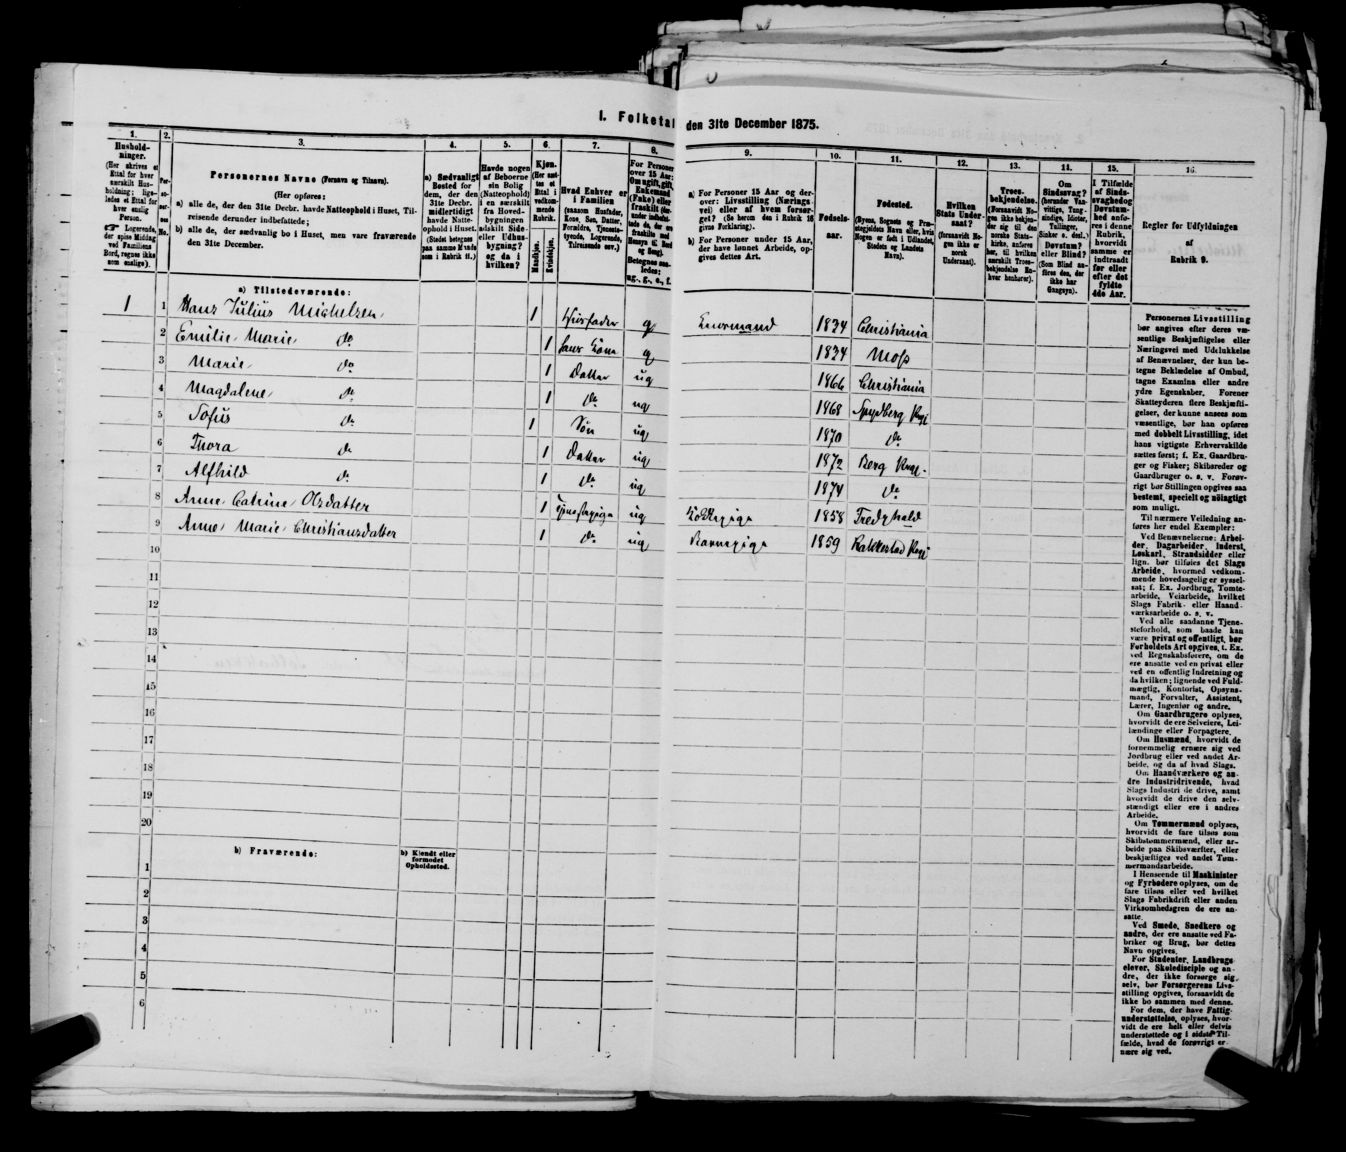 I. Folketal den 31te December 1875.
1.
Hushold-
ninger.
(Her skrives et
Ettal for hver
særskilt Hus-
holdning; lige-
ledes et Ettal for
hver enslig
Person.
Logerende,
der spise Middag
ved Familiens
Bord, regnes ikke
som enslige).
2.
3.
Personernes Navne (Fornavn og Tilnavn).
(Her opføres:
a) alle de, der den 31te Decbr. havde Natteophold i Huset, Til-
reisende derunder indbefattede;
b) alle de, der sædvanlig bo i Huset, men vare fraværende
den 31te December.
4.
a) Sædvanligt
Bosted for
dem, der den
31te Decbr.
midlertidigt
havde Natte-
ophold i Huset.
5.
Havde nogen
af Beboerne
sin Bolig
(Natteophold)
i en særskilt
fra Hoved-
bygningen
adskilt Side-
eller Udhus-
bygning?
og da i
hvilken?
6.
Kjøn.
(Her sæt-
tes et
Ettal i
vedkom-
mende
Rubrik.
Mandkjøn.
Kvindekjøn.
7.
Hvad Enhver er
i Familien
(saasom Husfader,
Kone, Søn, Datter,
Forældre, Tjeneste-
tyende, Logerende,
Tilreisende osv.)
8.
For Personer
over 15 Aar:
Om ugift, gift,
Enkemand
(Enke) eller
fraskilt
Betegnes saa-
ledes:
ug., g., e., f.
9.
a) For Personer 15 Aar og der-
over: Livsstilling (Nærings-
vei) eller af hvem forsør-
get? (Se herom den i Rubrik 16
givne Forklaring).
b) For Personer under 15 Aar,
der have lønnet Arbeide, op-
gives dettes Art.
10.
Fødsels-
aar.
11.
Fødested.
(Byens, Sognets og Præ-
stegjeldets Navn eller, hvis
Nogen er født i Udlandet,
Stedets og Landets
Navn).
12.
Hvilken
Stats Under-
saat?
(forsaavidt No-
gen ikke er
norsk
Undersaat).
13.
Troes-
bekjendelse.
(Forsaavidt No-
gen ikke bekjen-
der sig til den
norske Stats-
kirke, anføres
her, til hvilken
særskilt Troes-
bekjendelse En-
hver henhører).
14.
Om
Sindssvag?
(herunder Van-
vittige, Tung-
sindige, Idioter,
Tullinger,
Sinker o. desl.)
Døvstum?
eller Blind?
(Som Blind an-
føres den, der
ikke har
Gangsyn).
15.
I Tilfælde
af Sinds-
svaghed og
Døvstum-
hed anfø-
res i denne
Rubrik,
hvorvidt
samme er
indtraadt
før eller
efter det
fyldte
4de Aar.
16.
Regler for Udfyldningen
af
Rubrik 9.
a) Tilstedeværende:
1 1 Hans Julius Michelsen 1 Husfader g 1834 Christiania
2 Emilie Marie do 1 hans Kone g 1834 Moss
3 Marie do 1 Datter ug 1866 Christiania
4 Magdalene do 1 do ug 1868 Spydberg Prgj
5 Sofus do 1 Søn ug 1870 do
6 Thora do 1 Datter ug 1872 Berg Prgj.
7 Alfhild do 1 do ug 1874 do
8 Anne Catrine Olsdatter 1 Tjenestepige ug Kokkepige 1858 Fredrhald
9 Anne Marie Christiansdatter 1 do ug Barnepige 1859 Rakkestad Prgj
10
11
12
13
14
15
16
17
18
19
20
b) Fraværende:
b) Kjendt eller
formodet
Opholdssted.
1
2
3
4
5
6
Personernes Livsstilling
bør angives efter deres væ-
sentlige Beskjæftigelse eller
Næringsvei med Udelukkelse
af Benævnelser, der kun be-
tegne Beklædelse af Ombud,
tagne Examina eller andre
ydre Egenskaber. Forener
Skatteyderen flere Beskjæfti-
gelser, der kunne ansees som
væsentlige, bør han opføres
med dobbelt Livsstilling, idet
hans vigtigste Erhvervskilde
sættes først; f. Ex. Gaardbru-
ger og Fisker; Skibsreder og
Gaardbruger o. s. v. Forøv-
rigt bør Stillingen opgives saa
bestemt, specielt og nøiagtigt
som muligt.
Til nærmere Veiledning an-
føres her endel Exempler:
Ved Benævnelserne: Arbei-
der, Dagarbeider, Inderst,
Løskarl, Strandsidder eller
lign. bør tilføies det Slags
Arbeide, hvormed vedkom-
mende hovedsagelig er syssel-
sat; f. Ex. Jordbrug, Tomte-
arbeide, Veiarbeide, hvilket
Slags Fabrik- eller Haand-
værksarbeide o. s. v.
Ved alle saadanne Tjene-
steforhold, som baade kan
være privat og offentligt, bør
Forholdets Art opgives, f. Ex.
ved Regnskabsførere, om de
ere ansatte ved en privat eller
ved en offentlig Indretning og
da hvilken; lignende ved Fuld-
mægtig, Kontorist, Opsyns-
mand, Forvalter, Assistent,
Lærer, Ingeniør og andre.
Om Gaardbrugere oplyses,
hvorvidt de ere Selveiere, Lei-
lændinge eller Forpagtere.
Om Husmænd, hvorvidt de
fornemmelig ernære sig ved
Jordbrug eller ved andet Ar-
beide, og da af hvad Slags.
Om Haandværkere og an-
dre Industridrivende, hvad
Slags Industri de drive, samt
hvorvidt de drive den selv-
stændigt eller ere i andres
Arbeide.
Om Tømmermænd oplyses,
hvorvidt de fare tilsøs som
Skibstømmermænd, eller ar-
beide paa Skibsværfter, eller
beskjæftiges ved andet Tøm-
mermandsarbeide.
I Henseende til Maskinister
og Fyrbødere oplyses, om de
fare tilsøs eller ved hvilket
Slags Fabrikdrift eller anden
Virksomhedsgren de ere an-
satte.
Ved Smede, Snedkere og
andre, der ere ansatte ved Fa-
briker og Brug, bør dettes
Navn opgives.
For Studenter, Landbrugs-
elever, Skoledisciple og an-
dre, der ikke forsørge sig
selv, bør Forsørgerens Livs-
stilling opgives, forsaavidt de
ikke bo sammen med denne.
For dem, der have Fattig-
understøttelse, oplyses, hvor-
vidt de ere helt eller delvis
understøttede og i sidste Til-
fælde, hvad de forøvrigt er-
nære sig ved.